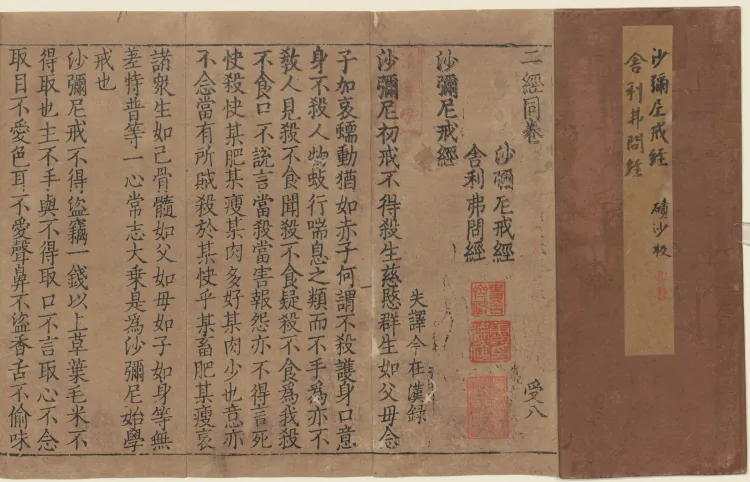 沙彌尼戒經 磧沙板
舍利弗問經
二經同卷 受八
沙彌尼戒經
舍利弗問經
沙彌尼戒經
失譯今在漢錄
沙彌尼初戒不得殺生慈愍群生如父母念
子加哀蠕動猶如赤子何謂不殺護身口意
身不殺人物蚑行喘息之類而不手為亦不
教人見殺不食聞殺不食疑殺不食為我殺
不食口不說言當殺當害報怨亦不得言死
快殺快某肥某瘦某肉多好某肉少也意亦
不念當有所賊殺於某快乎某畜肥某瘦哀
諸衆生如己骨髓如父如母如子如身等無
差特普等一心常志大乗是為沙彌尼始學
戒也
沙彌尼戒不得盜竊一錢以上草葉毛米不
得取也主不手與不得取口不言取心不念
取目不愛色耳不愛聲鼻不盜香舌不偷味